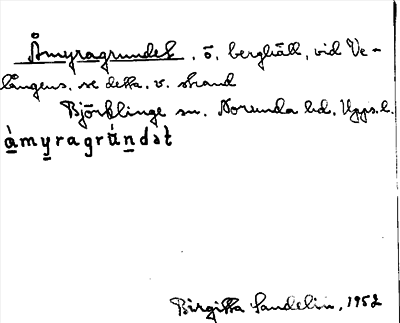 Åmyragrundet, ö, berghäll, vid Ve-
långens, se detta, v. strand
Björklinge sn. Norunda hd. Upps. l.
àmyragrúndət
Birgitta Sandelin, 1952